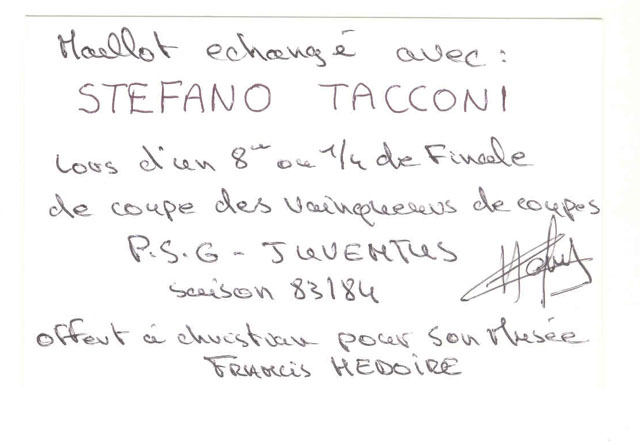 Maillot echangé avec :
STEFANO TACCONI
lors d'un 8ème ou 1/4 de Finale
de coupe des vainqueurs de coupes
P.S.G - JUVENTUS
saison 83/84
offert à christian pour son Musée
FRANCIS HEDOIRE